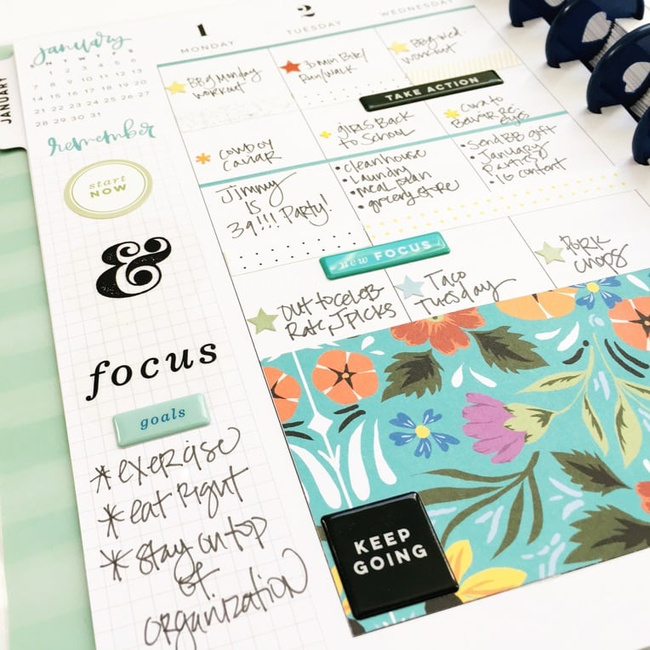 JANUARY
january
M T W T F S
1 2 3 4 5 6
7 8 9 10 11 12 13
14 15 16 17 18 19 20
21 22 23 24 25 26 27
28 29 30 31
remember
start
NOW
&
focus
goals
*exercise
*eat right
*stay on top
of
organization
1
MONDAY
BBG Monday
workout
cowboy
caviar
Jimmy
is
39!!! Party!
out to celeb
Rate J Picks
2
TUESDAY
30 min Bike/
Run/walk
girls Back
to School
• clean house
• laundry
• meal plan
• grocery store
new FOCUS
Taco
Tuesday
WEDNESDAY
BBG wed.
workout
TAKE ACTION
eyes
• Send BB gift
• January
• IG content
Pork
chops
KEEP
GOING